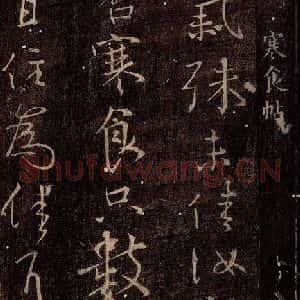 寒食帖
氣殊未佳汝
否寒食只數
且住為佳耳
Shufawang.CN